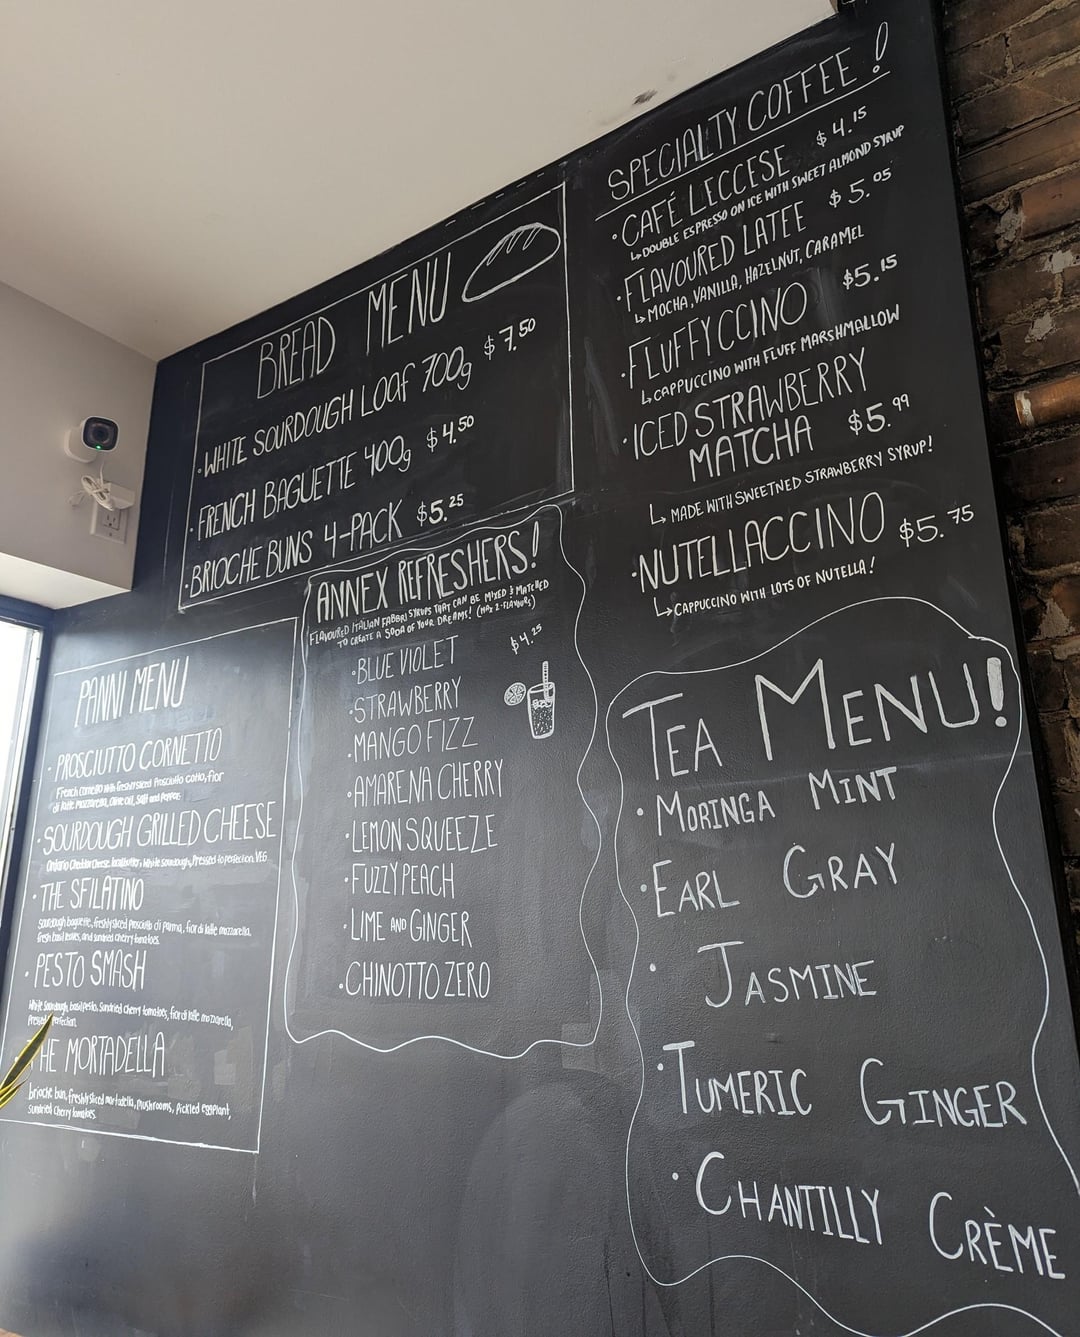 BREAD MENU
• WHITE SOURDOUGH LOAF 700g $7.50
• FRENCH BAGUETTE 400g $4.50
• BRIOCHE BUNS 4-PACK $5.25
PANNI MENU
• PROSCIUTTO CORNETTO
French Cornetto with freshly sliced Prosciutto cotto, fior
di latte mozzarella, Olive oil, Salt and Pepper.
• SOURDOUGH GRILLED CHEESE
Ontario Cheddar Cheese, White Sourdough, Pressed to perfection. VEG
• THE SFILATINO
Sourdough baguette, freshly sliced prosciutto di parma, fior di latte mozzarella,
fresh basil leaves, and sundried cherry tomatoes.
• PESTO SMASH
White Sourdough, basil pesto, Sundried Cherry tomatoes, fior di latte mozzarella,
Pressed perfection.
THE MORTADELLA
brioche bun, freshly sliced mortadella, mushrooms, Pickled eggplant,
Sundried Cherry tomatoes.
ANNEX REFRESHERS!
FLAVOURED ITALIAN FABBRI SYRUPS THAT CAN BE MIXED & MATCHED
TO CREATE A SODA OF YOUR DREAMS! (MAX 2-FLAVOURS)
$4.25
• BLUE VIOLET
• STRAWBERRY
• MANGO FIZZ
• AMARENA CHERRY
• LEMON SQUEEZE
• FUZZY PEACH
• LIME AND GINGER
• CHINOTTO ZERO
SPECIALTY COFFEE!
• CAFÉ LECCESE $4.15
↳ DOUBLE ESPRESSO ON ICE WITH SWEET ALMOND SYRUP
• FLAVOURED LATEE $5.05
↳ MOCHA, VANILLA, HAZELNUT, CARAMEL
• FLUFFYCCINO $5.15
↳ CAPPUCCINO WITH FLUFF MARSHMALLOW
• ICED STRAWBERRY
MATCHA $5.99
↳ MADE WITH SWEETNED STRAWBERRY SYRUP!
• NUTELLACCINO $5.75
↳ CAPPUCCINO WITH LOTS OF NUTELLA!
TEA MENU!
• MORINGA MINT
• EARL GRAY
• JASMINE
• TUMERIC GINGER
• CHANTILLY CRÈME